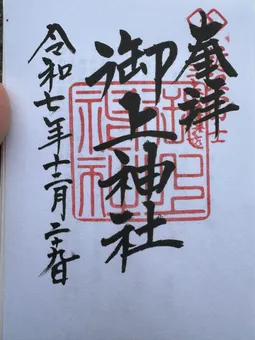 奉拝
御上神社
令和七年十二月二十九日